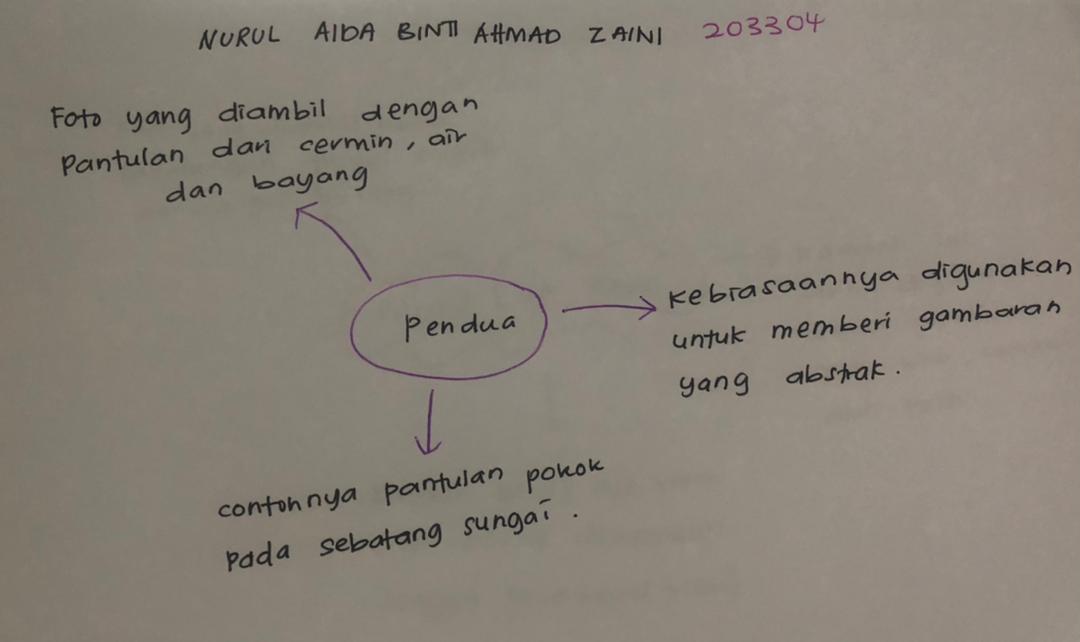 NURUL AIDA BINTI AHMAD ZAINI 203304
Foto yang diambil dengan
Pantulan dari cermin, air
dan bayang
Pendua
Kebiasaannya digunakan
untuk memberi gambaran
yang abstrak.
contohnya pantulan pokok
pada sebatang sungai.